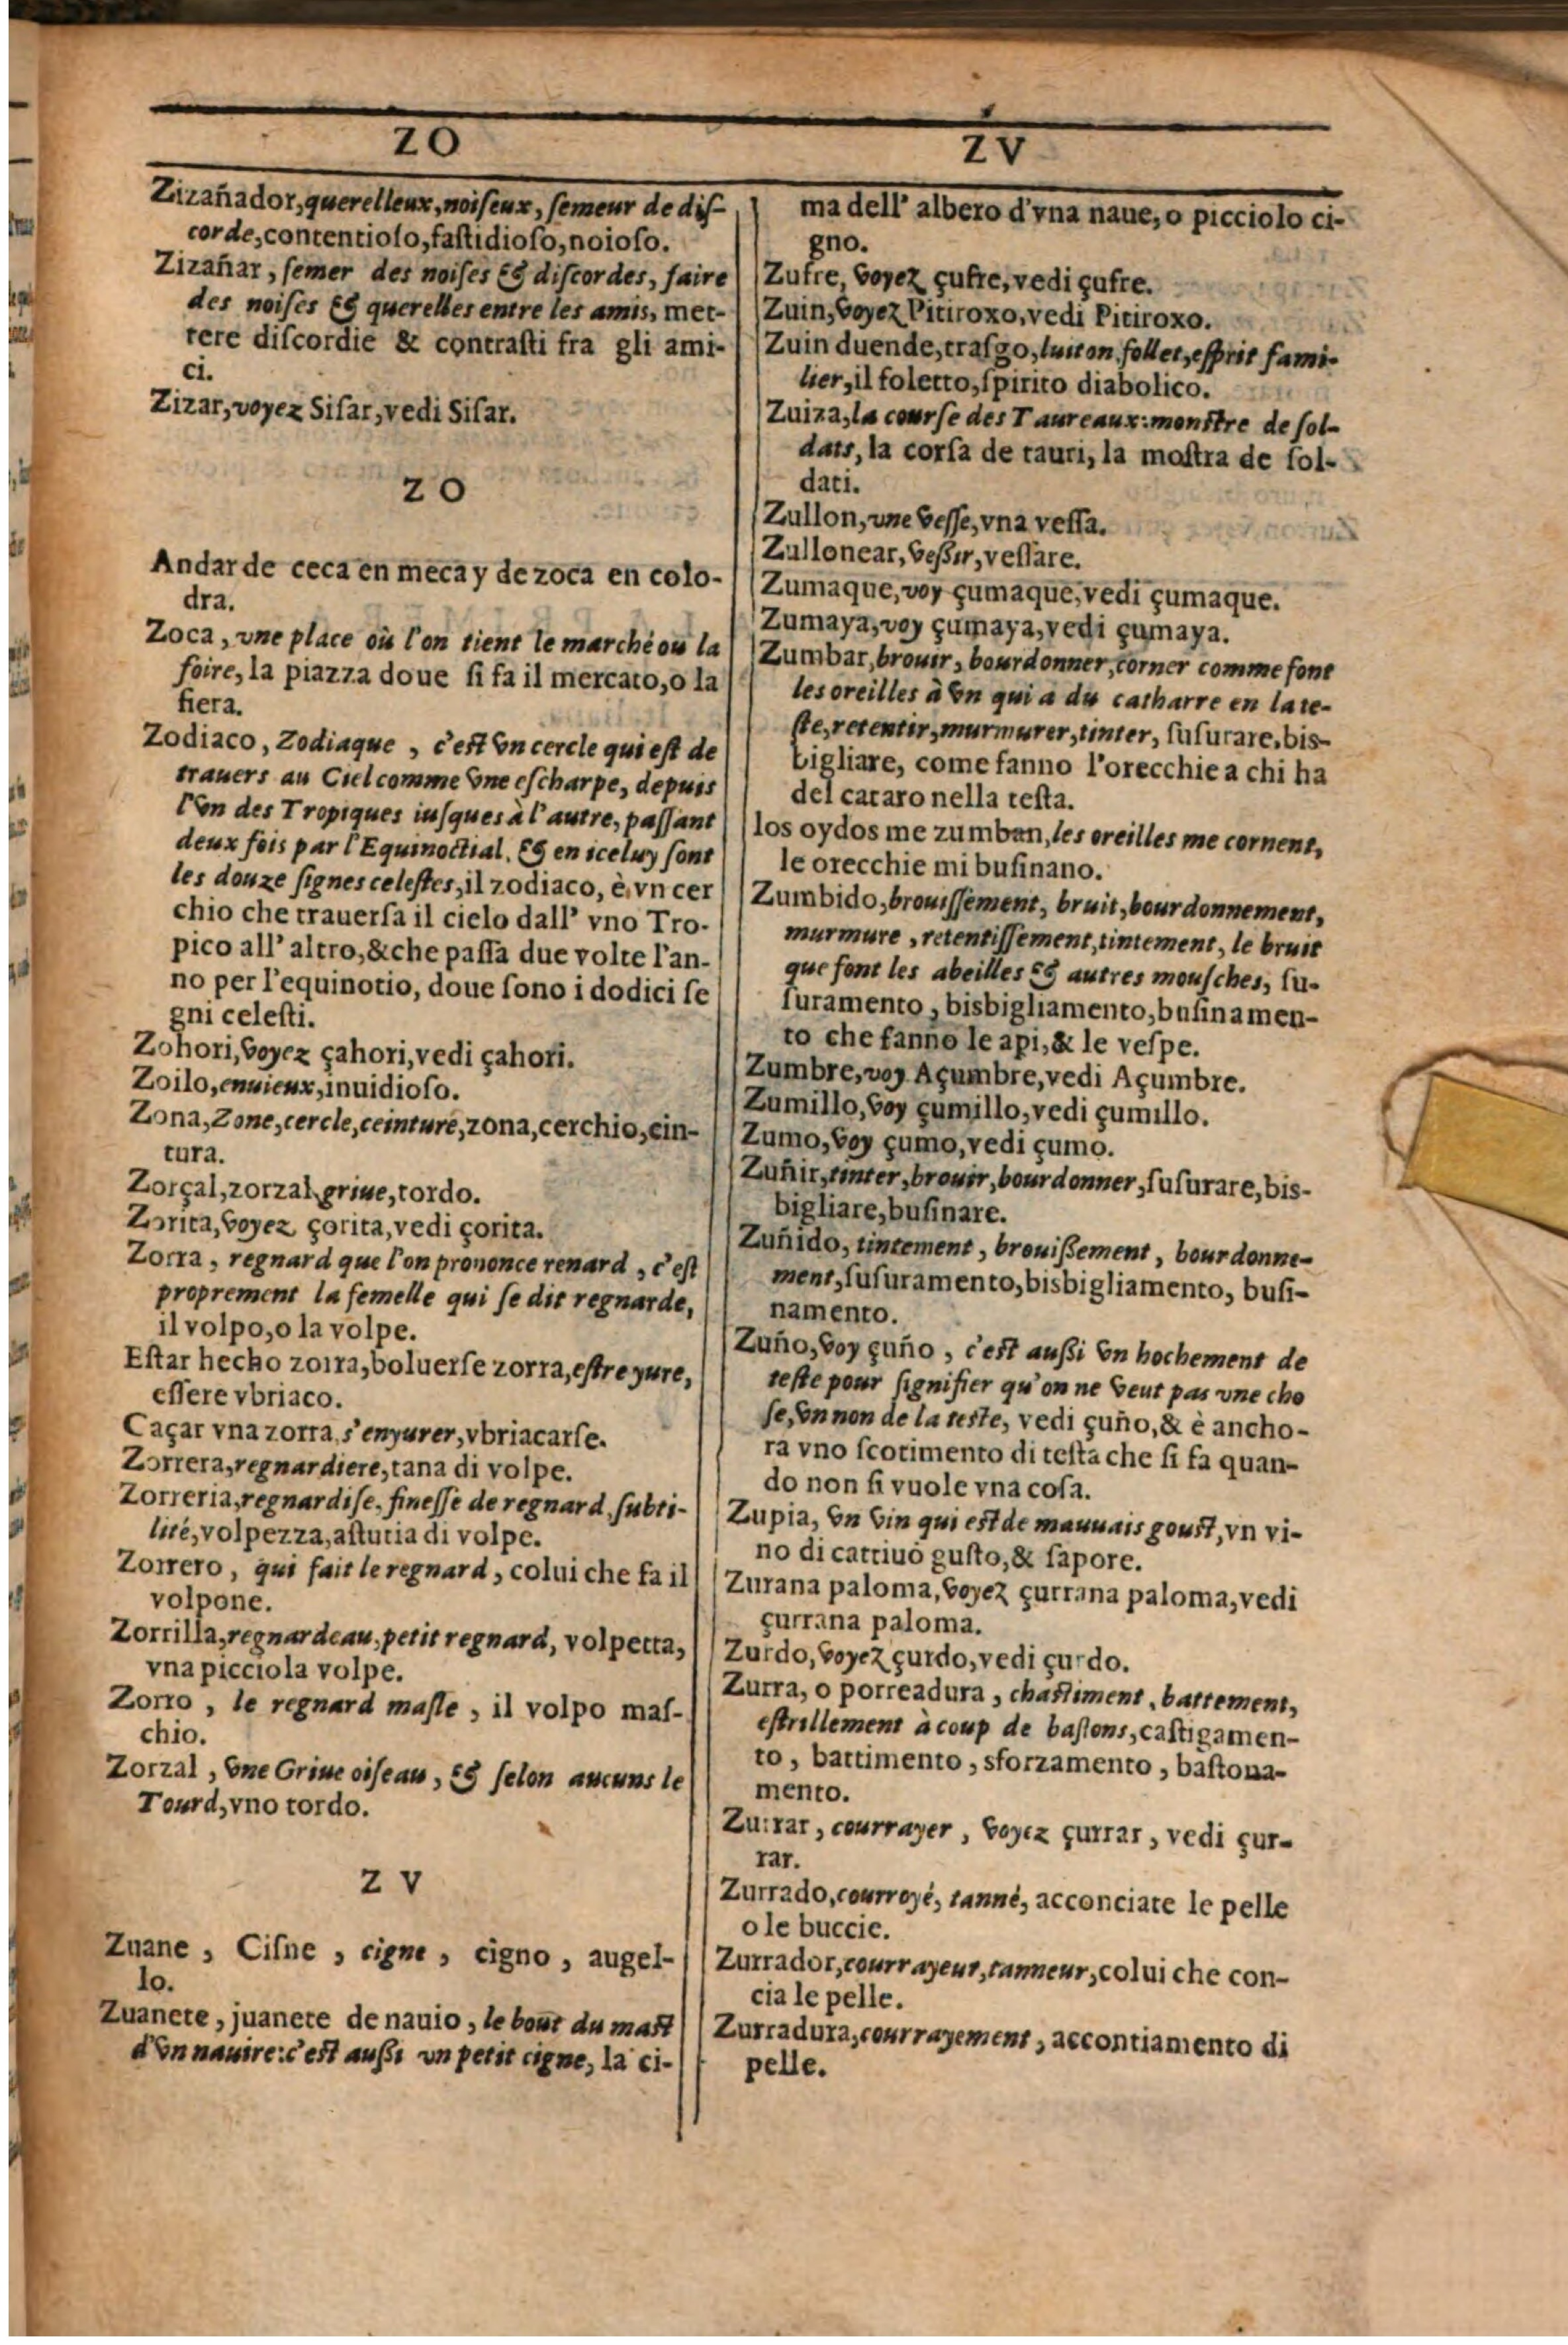 ZO
Zizañador, querelleux, noiſeux, ſemeur de diſ-
corde, contentioſo, faſtidioſo, noioſo.
Zizañar, ſemer des noiſes & diſcordes, faire
des noiſes & querelles entre les amis, met-
tere diſcordie & contraſti fra gli ami-
ci.
Zizar, voyez Siſar, vedi Siſar.
ZO
Andar de ceca en meca y de zoca en colo-
dra.
Zoca, vne place où l'on tient le marché ou la
foire, la piazza doue ſi fa il mercato, o la
fiera.
Zodiaco, Zodiaque, c'eſt vn cercle qui eſt de
trauers au Ciel comme vne eſcharpe, depuis
l'vn des Tropiques iuſques à l'autre, paſſant
deux fois par l'Equinoctial, & en iceluy ſont
les douze ſignes celeſtes, il zodiaco, è vn cer
chio che trauerſa il cielo dall' vno Tro-
pico all' altro, & che paſſa due volte l'an-
no per l'equinotio, doue ſono i dodici ſe
gni celeſti.
Zohori, voyez çahori, vedi çahori.
Zoilo, enuieux, inuidioſo.
Zona, Zone, cercle, ceinture, zona, cerchio, cin-
tura.
Zorçal, zorzal, griue, tordo.
Zorita, voyez çorita, vedi çorita.
Zorra, regnard que l'on prononce renard, c'eſt
proprement la femelle qui ſe dit regnarde,
il volpo, o la volpe.
Eſtar hecho zorra, boluerſe zorra, eſtre yure,
eſſere vbriaco.
Caçar vna zorra, s'enyurer, vbriacarſe.
Zorrera, regnardiere, tana di volpe.
Zorreria, regnardiſe, fineſſe de regnard, ſubti-
lité, volpezza, aſtutia di volpe.
Zorrero, qui fait le regnard, colui che fa il
volpone.
Zorrilla, regnardeau, petit regnard, volpetta,
vna picciola volpe.
Zorro, le regnard maſle, il volpo maſ-
chio.
Zorzal, vne Griue oiſeau, & ſelon aucuns le
Tourd, vno tordo.
ZV
Zuane, Ciſne, cigne, cigno, augel-
lo.
Zuanete, juanete de nauio, le bout du maſt
d'vn nauire: c'eſt auſſi vn petit cigne, la ci-
ZV
ma dell' albero d'vna naue, o picciolo ci-
gno.
Zufre, voyez çufre, vedi çufre.
Zuin, voyez Pitiroxo, vedi Pitiroxo.
Zuin duende, traſgo, luiton, follet, eſprit fami-
lier, il foletto, ſpirito diabolico.
Zuiza, la courſe des Taureaux: monſtre de ſol-
dats, la corſa de tauri, la moſtra de ſol-
dati.
Zullon, vne veſſe, vna veſſa.
Zullonear, veßir, veſſare.
Zumaque, voy çumaque, vedi çumaque.
Zumaya, voy çumaya, vedi çumaya.
Zumbar, brouir, bourdonner, corner comme font
les oreilles à vn qui a du catharre en la te-
ſte, retentir, murmurer, tinter, ſuſurare, bis-
bigliare, come fanno l'orecchie a chi ha
del cataro nella teſta.
los oydos me zumban, les oreilles me cornent,
le orecchie mi buſinano.
Zumbido, brouiſſement, bruit, bourdonnement,
murmure, retentiſſement, tintement, le bruit
que font les abeilles & autres mouſches, ſu-
ſuramento, bisbigliamento, buſinamen-
to che fanno le api, & le veſpe.
Zumbre, voy Açumbre, vedi Açumbre.
Zumillo, voy çumillo, vedi çumillo.
Zumo, voy çumo, vedi çumo.
Zuñir, tinter, brouir, bourdonner, ſuſurare, bis-
bigliare, buſinare.
Zuñido, tintement, brouißement, bourdonne-
ment, ſuſuramento, bisbigliamento, buſi-
namento.
Zuño, voy çuño, c'eſt außi vn hochement de
teſte pour ſignifier qu'on ne veut pas vne cho
ſe, vn non de la teſte, vedi çuño, & è ancho-
ra vno ſcotimento di teſta che ſi fa quan-
do non ſi vuole vna coſa.
Zupia, vn vin qui eſt de mauuais gouſt, vn vi-
no di cattiuo guſto, & ſapore.
Zurana paloma, voyez çurrana paloma, vedi
çurrana paloma.
Zurdo, voyez çurdo, vedi çurdo.
Zurra, o porreadura, chaſtiment, battement,
eſtrillement à coup de baſtons, caſtigamen-
to, battimento, sforzamento, baſtona-
mento.
Zurrar, courrayer, voyez çurrar, vedi çur-
rar.
Zurrado, courroyé, tanné, acconciate le pelle
o le buccie.
Zurrador, courrayeur, tanneur, colui che con-
cia le pelle.
Zurradura, courrayement, accontiamento di
pelle.